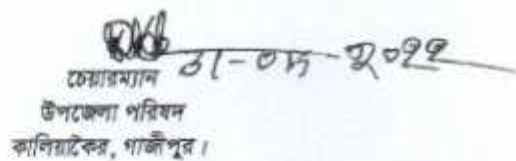 ৩১-০৮-২০২২
চেয়ারম্যান
উপজেলা পরিষদ
কালিয়াকৈর, গাজীপুর।